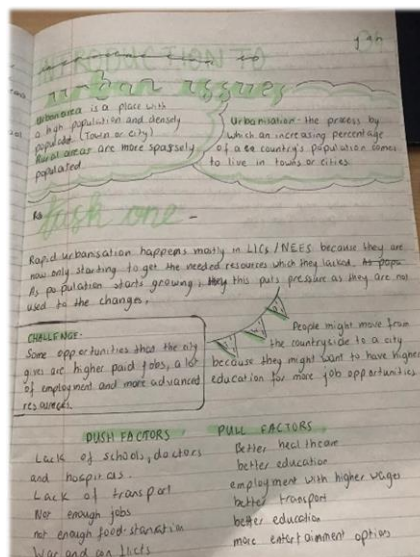 INTRODUCTION TO
urban issues
Urban area is a place with
a high population and densely
populated. (Town or city)
Rural areas are more sparsely
populated.
Urbanisation - the process by
which an increasing percentage
of a country's population comes
to live in towns or cities.
task one -
Rapid urbanisation happens mostly in LICs / NEEs because they are
now only starting to get the needed resources which they lacked.
As population starts growing, this puts pressure as they are not
used to the changes.
CHALLENGE:
Some opportunities that the city
gives are higher paid jobs, a lot
of employment and more advanced
resources.
People might move from
the countryside to a city
because they might want to have higher
education for more job opportunities.
PUSH FACTORS
Lack of schools, doctors
and hospitals.
Lack of transport
Not enough jobs
not enough food-starvation
War and conflicts
PULL FACTORS
Better healthcare
better education
employment with higher wages
better transport
better education
more entertainment options